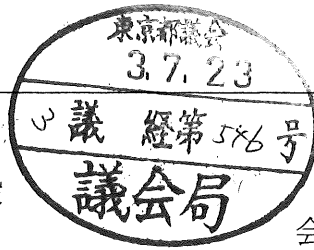 東京都議会
3.7.23
3議 経第546号
議会局
会